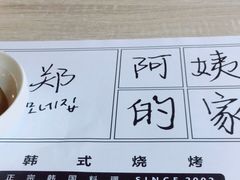 郑 阿姨
모네집 的家
韩式烧烤
正宗韩国料理 SINCE 2002